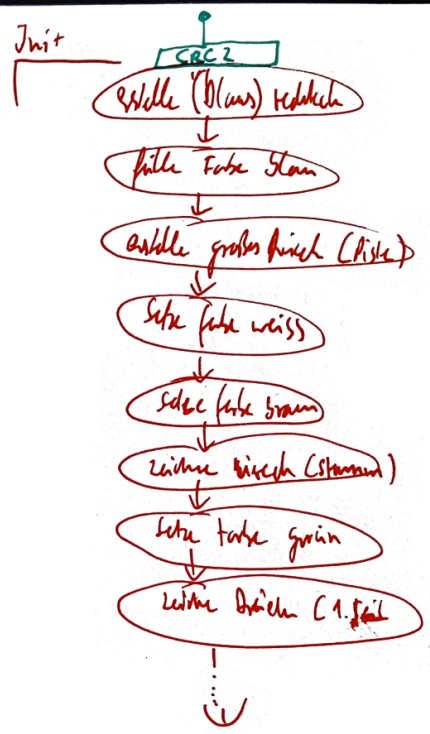 Init
CRC 2
erstelle (blaues) rechteck
fülle Farbe blau
erstelle großes Dreieck (Piste)
Setze farbe weiss
setze farbe braun
zeichne (Stamm)
setze farbe grün
zeichne Dreieck (1.